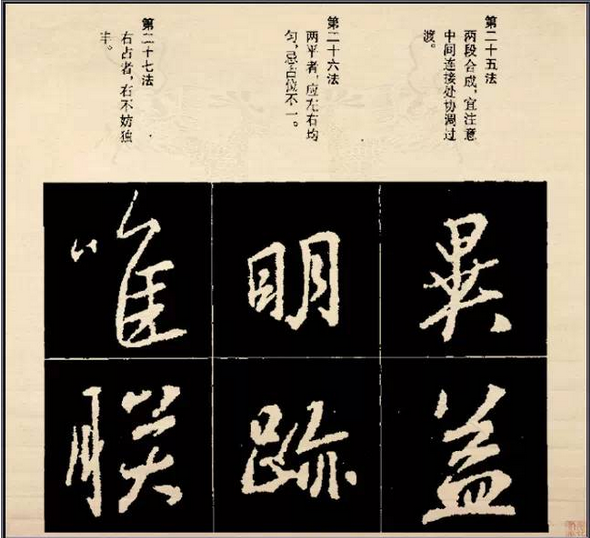 第二十五法
两段合成，宜注意
中间连接处协调过
渡。
第二十六法
两平者，应左右均
匀，忌占位不一。
第二十七法
右占者，右不妨独
丰。
明
跡
唯
朕